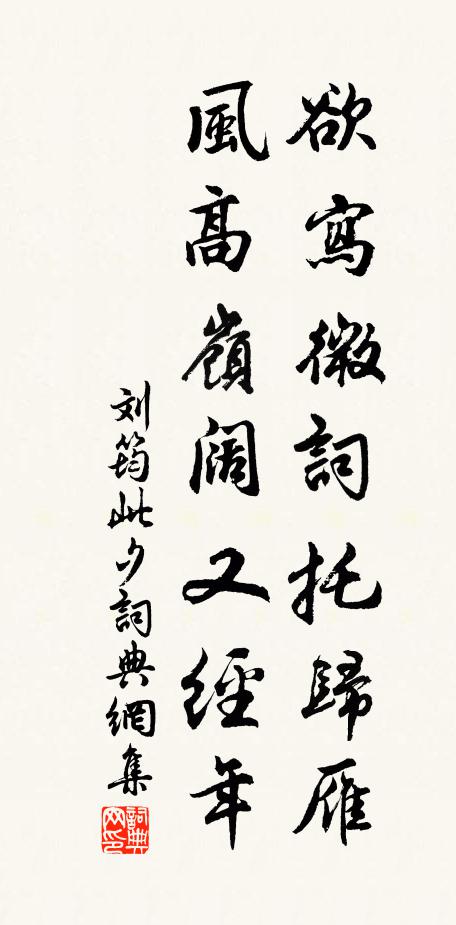 欲寫微詞托歸雁
風高嶺闊又經年
刘筠此夕詞典網集
詞典网印